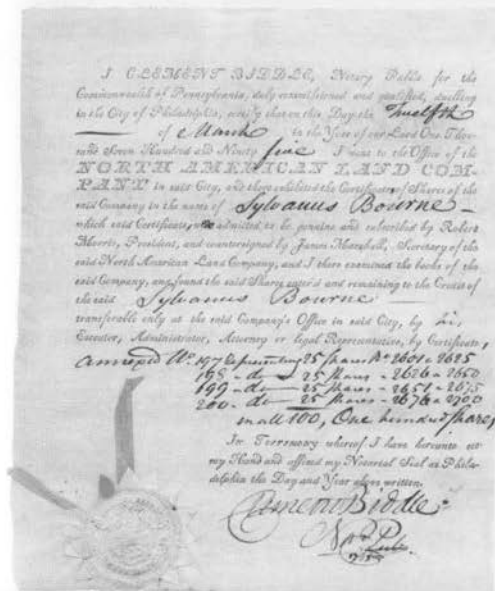 I CLEMENT BIDDLE, Notary Public for the
Commonwealth of Pennsylvania, duly commissioned and qualified, dwelling
in the City of Philadelphia, certify that on this Day the Twelfth
of March in the Year of our Lord One Thou-
sand Seven Hundred and Ninety five I went to the Office of the
NORTH AMERICAN LAND COM-
PANY in said City, and there exhibited the Certificates of Shares of the
said Company in the name of Sylvanus Bourne
which said Certificates, admitted to be genuine and subscribed by Robert
Morris, President, and countersigned by James Marshall, Secretary of the
said North American Land Company, and I there examined the books of the
said Company, and found the said Shares enter'd and remaining to the Credit of
the said Sylvanus Bourne
transferable only at the said Company's Office in said City, by his
Executor, Administrator, Attorney or legal Representative, by Certificate,
annexed No. 197 Representing 25 shares No 2601 a 2625
198 - do - 25 shares - 2626 a 2650
199 - do - 25 shares - 2651 a 2675
200 - do - 25 shares - 2676 a 2700
in all 100, One hundred shares,
In Testimony whereof I have hereunto set
my Hand and affixed my Notarial Seal at Phila-
delphia the Day and Year above written.
Clement Biddle
Not Pub.
1795